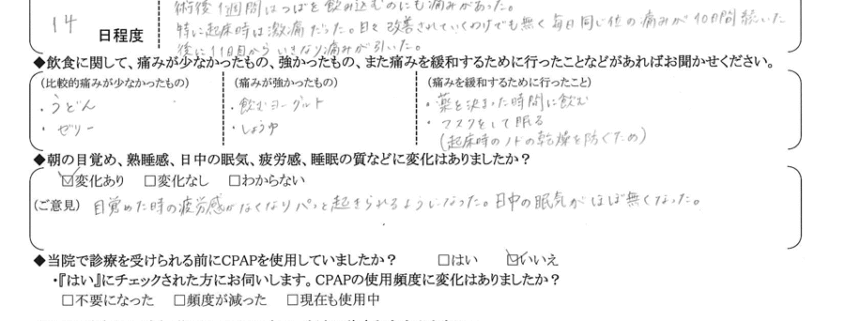 術後1週間はつばを飲み込むのにも痛みがあった。
特に起床時は激痛だった。日々改善されていくわけでも無く毎日同じ位の痛みが10日間続いた
14 日程度
後に11日目からいきなり痛みが引いた。
◆飲食に関して、痛みが少なかったもの、強かったもの、また痛みを緩和するために行ったことなどがあればお聞かせください。
(比較的痛みが少なかったもの) (痛みが強かったもの) (痛みを緩和するために行ったこと)
・うどん ・飲むヨーグルト ・薬を決まった時間に飲む
・ゼリー ・しょうゆ ・マスクをして眠る
(起床時のノドの乾燥を防ぐため)
◆朝の目覚め、熟睡感、日中の眠気、疲労感、睡眠の質などに変化はありましたか?
☑変化あり □変化なし □わからない
(ご意見) 目覚めた時の疲労感がなくなりパッと起きられるようになった。日中の眠気がほぼ無くなった。
◆当院で診療を受けられる前にCPAPを使用していましたか? □はい ☑いいえ
・『はい』にチェックされた方にお伺いします。CPAPの使用頻度に変化はありましたか?
□不要になった □頻度が減った □現在も使用中